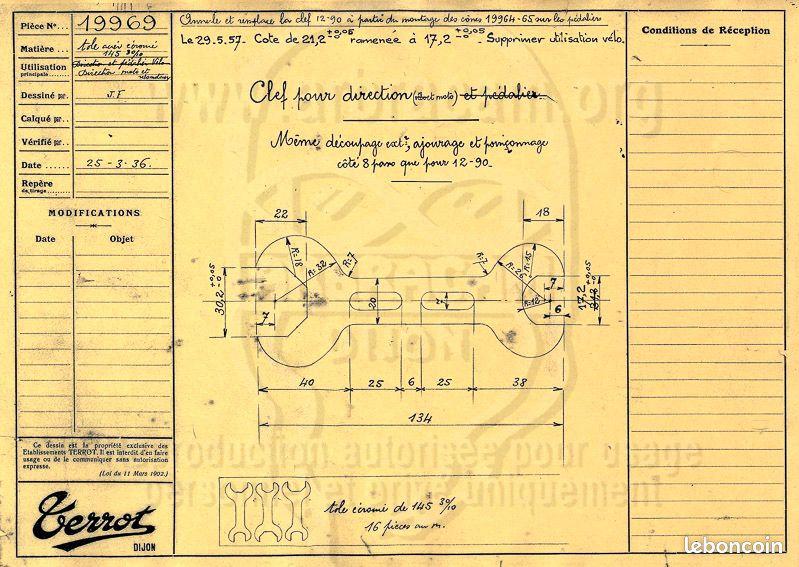 Pièce N°... 19969
Matière... tôle acier écroui
145 30/10
Utilisation
principale... Direction et pédalier Vélo
Direction moto et
Dessiné par... J.F
Calqué par...
Vérifié par...
Date... 25-3-36.
Repère
de tirage...
MODIFICATIONS
Date Objet
Annule et remplace la clef 12-90 à partir du montage des cônes 19964-65 sur les pédaliers
Le 29.5.57. Cote de 21,2 +0,05 -0 ramenée à 17,2 +0,05 -0. Supprimer utilisation vélo.
Conditions de Réception
Clef pour direction (vélo et moto) et pédalier.
Même découpage extr, ajourage et poinçonnage
côté 8 pans que pour 12-90.
22 18
R=18 R=32 R=7 R=7 R=26 R=15
30,2 +0,05 -0
7 20 7 R=12 7 6
17,2 +0,05 -0
21,2
40 25 6 25 38
134
Ce dessin est la propriété exclusive des
Etablissements TERROT. Il est interdit d'en faire
usage ou de le communiquer sans autorisation
expresse.
(Loi du 11 Mars 1902.)
Terrot
DIJON
tôle écroui de 145 30/10
16 pièces au m.
reproduction autorisée pour usage
personnel et privé uniquement
leboncoin